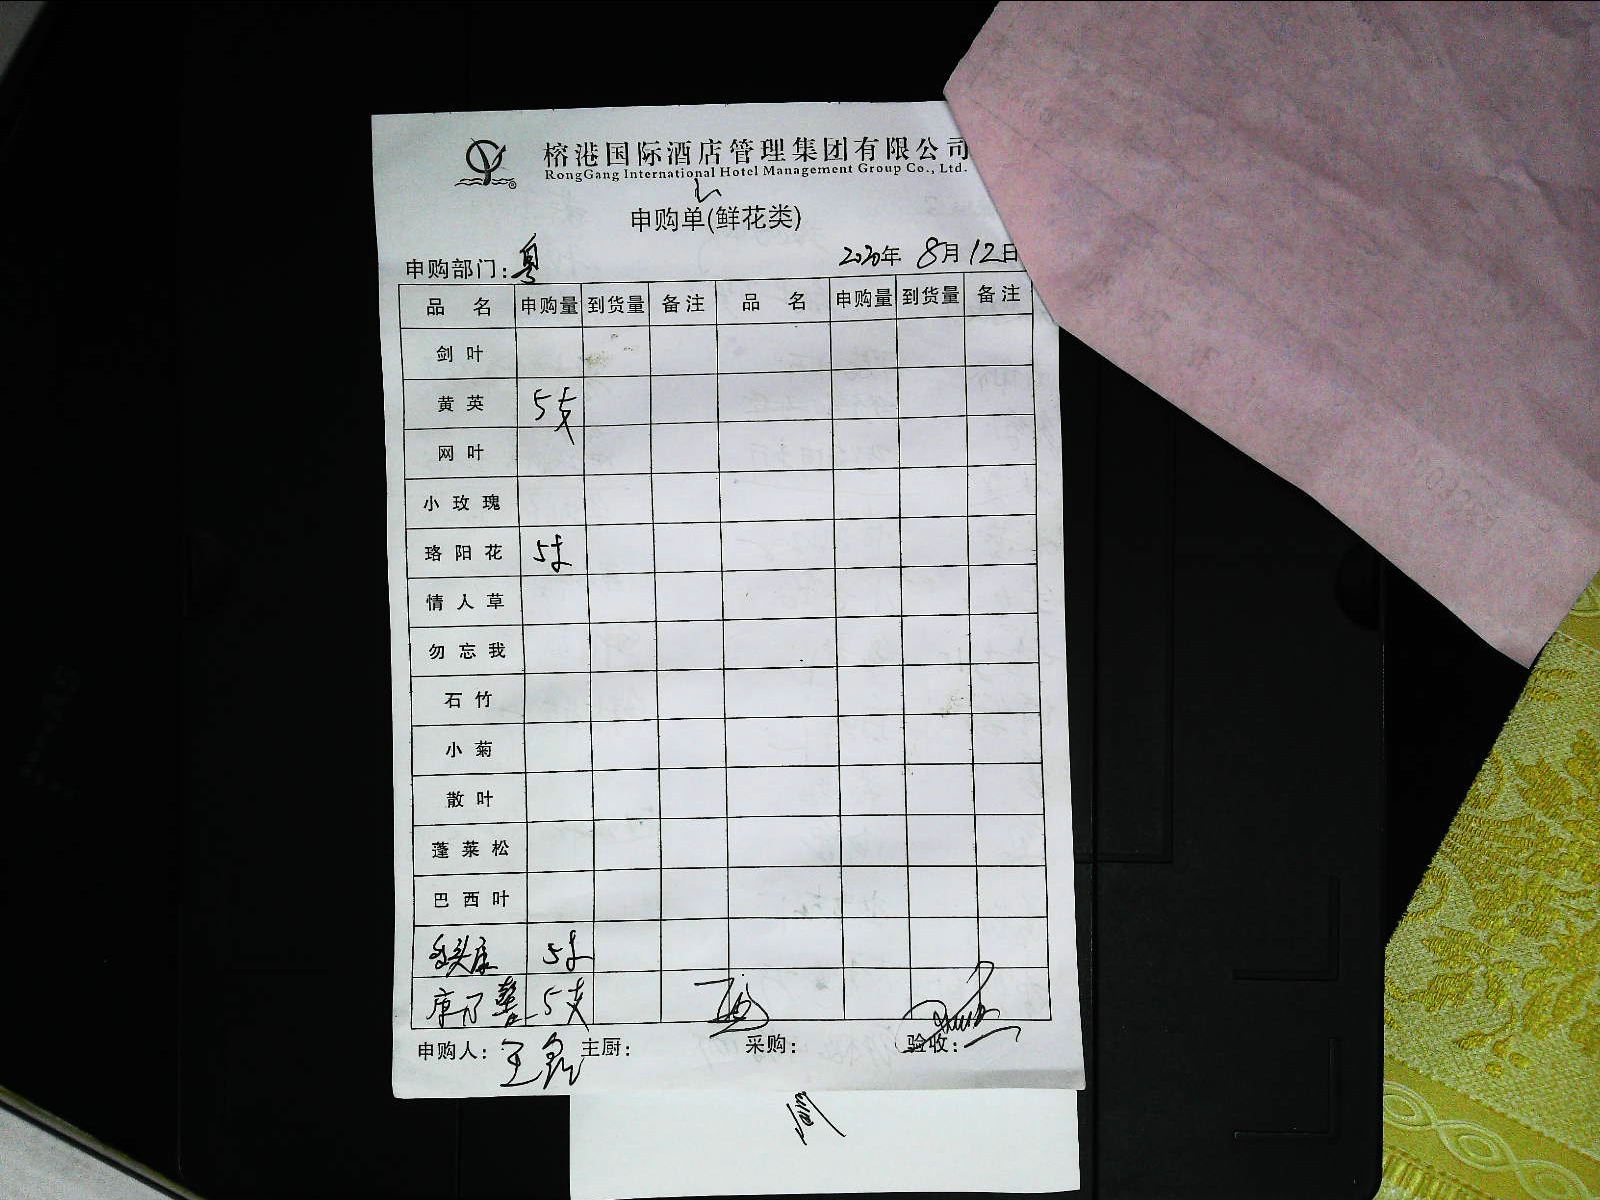 榕港国际酒店管理集团有限公司
RongGang International Hotel Management Group Co., Ltd.
申购单(鲜花类)
申购部门: 粤 2020年 8月12日
品 名 申购量 到货量 备注 品 名 申购量 到货量 备注
剑叶
黄英 5支
网叶
小玫瑰
珞阳花 5支
情人草
勿忘我
石竹
小菊
散叶
蓬莱松
巴西叶
5支
康乃馨 5支
申购人: 王 主厨: 采购: 验收: